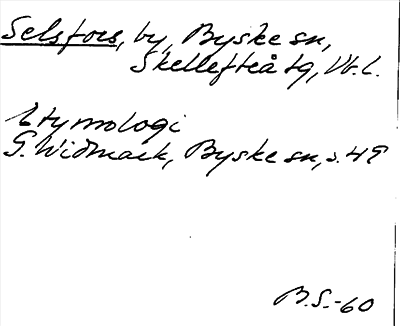 Selsfors, by, Byske sn,
Skellefteå tg, Vb.l.
Etymologi
G. Widmark, Byske sn, s. 49
B.S.-60